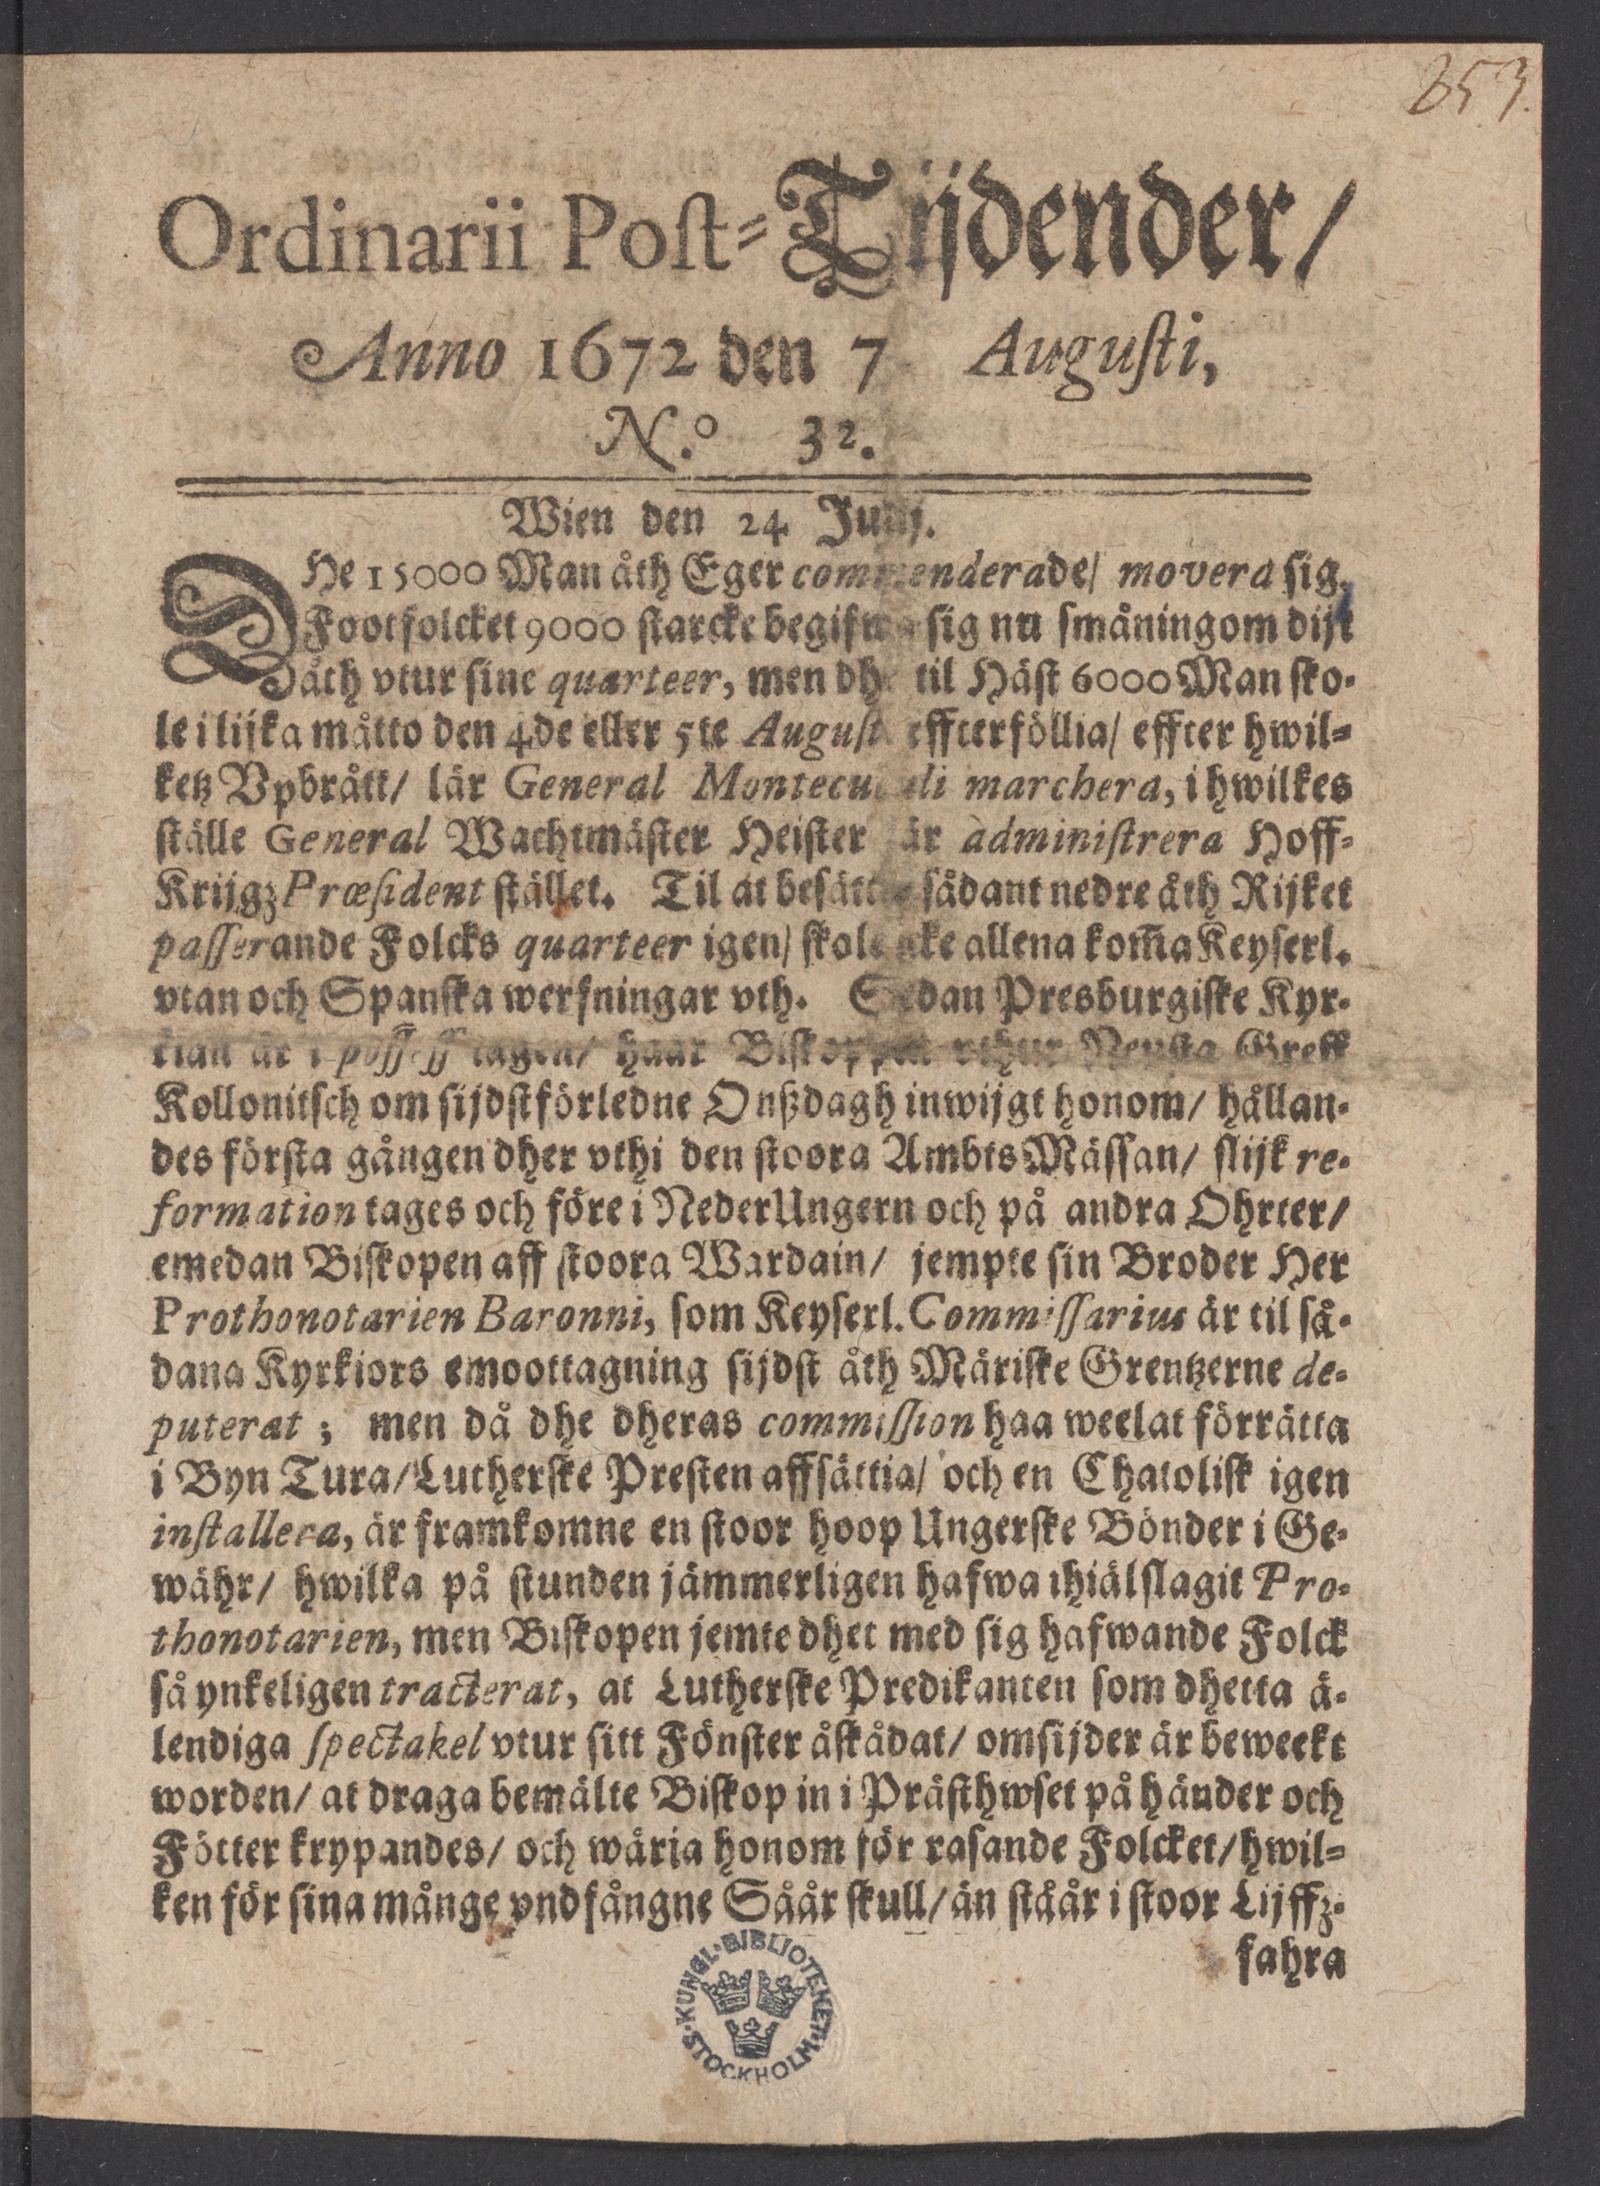 853.
Ordinarii Post-Tijdender/
Anno 1672 den 7 Augusti,
N.o 32.
Wien den 24 Julij.
DHe 15000 Man åth Eger commenderade/ movera sig.
Footfolcket 9000 starcke begifwa sig nu småningom dijt
åth vtur sine quarteer, men dhe til Häst 6000 Man sko-
le i lijka måtto den 4de eller 5te August effterföllia/ effter hwil-
ketz Vpbrått/ lär General Montecuculi marchera, i hwilkes
ställe General Wachtmäster Heister lär administrera Hoff-
Krijgz Præsident stället. Til at besättia sådant nedre åth Rijket
passerande Folcks quarteer igen/ skole icke allena kom̃a Keyserl.
vtan och Spanska werfningar vth. Sedan Presburgiske Kyr-
kian är i possess tagen/ haar Biskoppen vthur Neusta Greff
Kollonitsch om sijdstförledne Onßdagh inwijgt honom/ hållan-
des första gången dher vthi den stoora Ambts Mässan/ slijk re-
formation tages och före i NederUngern och på andra Ohrter/
emedan Biskopen aff stoora Wardain/ jempte sin Broder Her
Prothonotarien Baronni, som Keyserl. Commissarius är til så-
dana Kyrkiors emoottagning sijdst åth Märiske Grentzerne de-
puterat; men då dhe dheras commission haa weelat förrätta
i Byn Tura/ Lutherske Presten affsättia/ och en Chatolisk igen
installera, är framkomne en stoor hoop Ungerske Bönder i Ge-
währ/ hwilka på stunden jämmerligen hafwa ihiälslagit Pro-
thonotarien, men Biskopen jemte dhet med sig hafwande Folck
så ynkeligen tracterat, at Lutherske Predikanten som dhetta ä-
lendiga spectakel vtur sitt Fönster åskådat/ omsijder är beweekt
worden/ at draga bemälte Biskop in i Prästhwset på händer och
Fötter krypandes/ och wäria honom för rasande Folcket/ hwil-
ken för sina många vndfångne Såår skull/ än stäår i stoor Lijffz-
fahra
KUNGL. BIBLIOTEKET. STOCKHOLM.